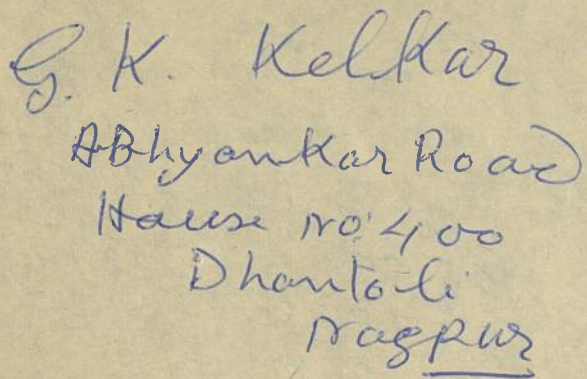 G. K. Kelkar
Abhyankar Road
House No. 400
Dhantoli
Nagpur